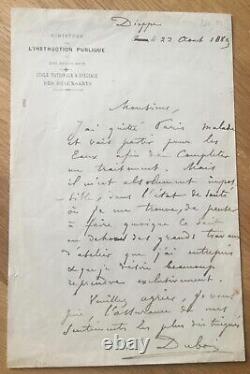 Dieppe
MINISTÈRE
DE
L'INSTRUCTION PUBLIQUE
ÉCOLE NATIONALE & SPÉCIALE
DES BEAUX-ARTS
le 22 Août 1889
Monsieur,
J'ai quitté Paris malade
et vais partir pour les
Eaux afin de compléter
un traitement. Mais
il m'est absolument impos
sible, dans l'état de santé
où je me trouve, de penser
à faire quoique ce soit
en dehors des grands travaux
d'atelier que j'ai entrepris
et que je désire beaucoup
reprendre exclusivement.
Veuillez agréer, je vous
prie l'assurance de mes
sentiments les plus distingués
Dubois